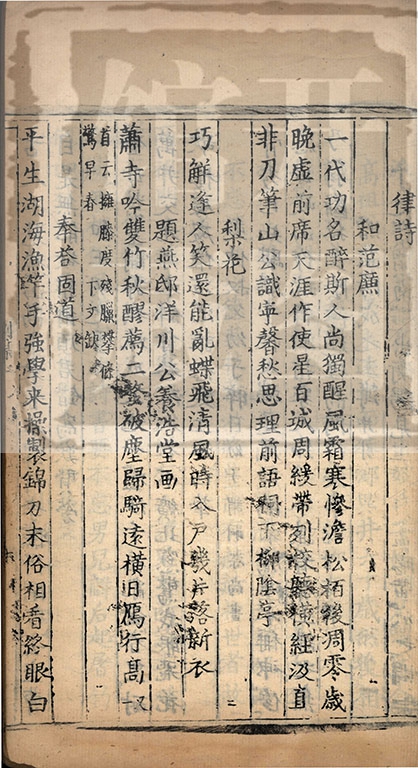 律詩
和范廌
一代功名醉斯人尚獨醒風霜寒慘澹松柏後凋零歲
晚虛前席天涯作使星百城周緩帶列校聽橫經汲直
非刀筆山公識寧馨秋思理前語祠下柳陰亭
梨花
巧解逢人笑還能亂蝶飛清風時入戶幾片落新衣
題燕邸洋川公養浩堂畫
蕭寺吟雙竹秋醪薦二螯破塵歸騎遠橫日鴈行高
首云擁膝度殘臘攀條
驚早春下文缺
奉荅固道
平生湖海漁竿手強學來操製錦刀末俗相看終眼白